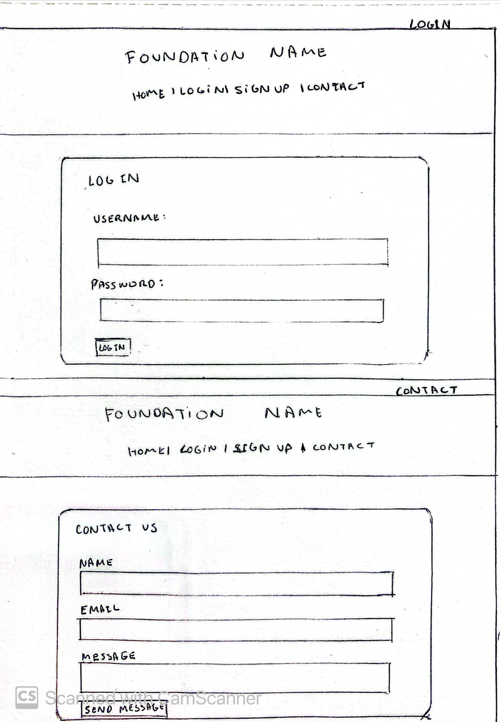 LOGIN
FOUNDATION NAME
HOME | LOGIN | SIGN UP | CONTACT
LOG IN
USERNAME:
PASSWORD:
LOG IN
CONTACT
FOUNDATION NAME
HOME | LOGIN | SIGN UP | CONTACT
CONTACT US
NAME
EMAIL
MESSAGE
SEND MESSAGE
CS Scanned with CamScanner